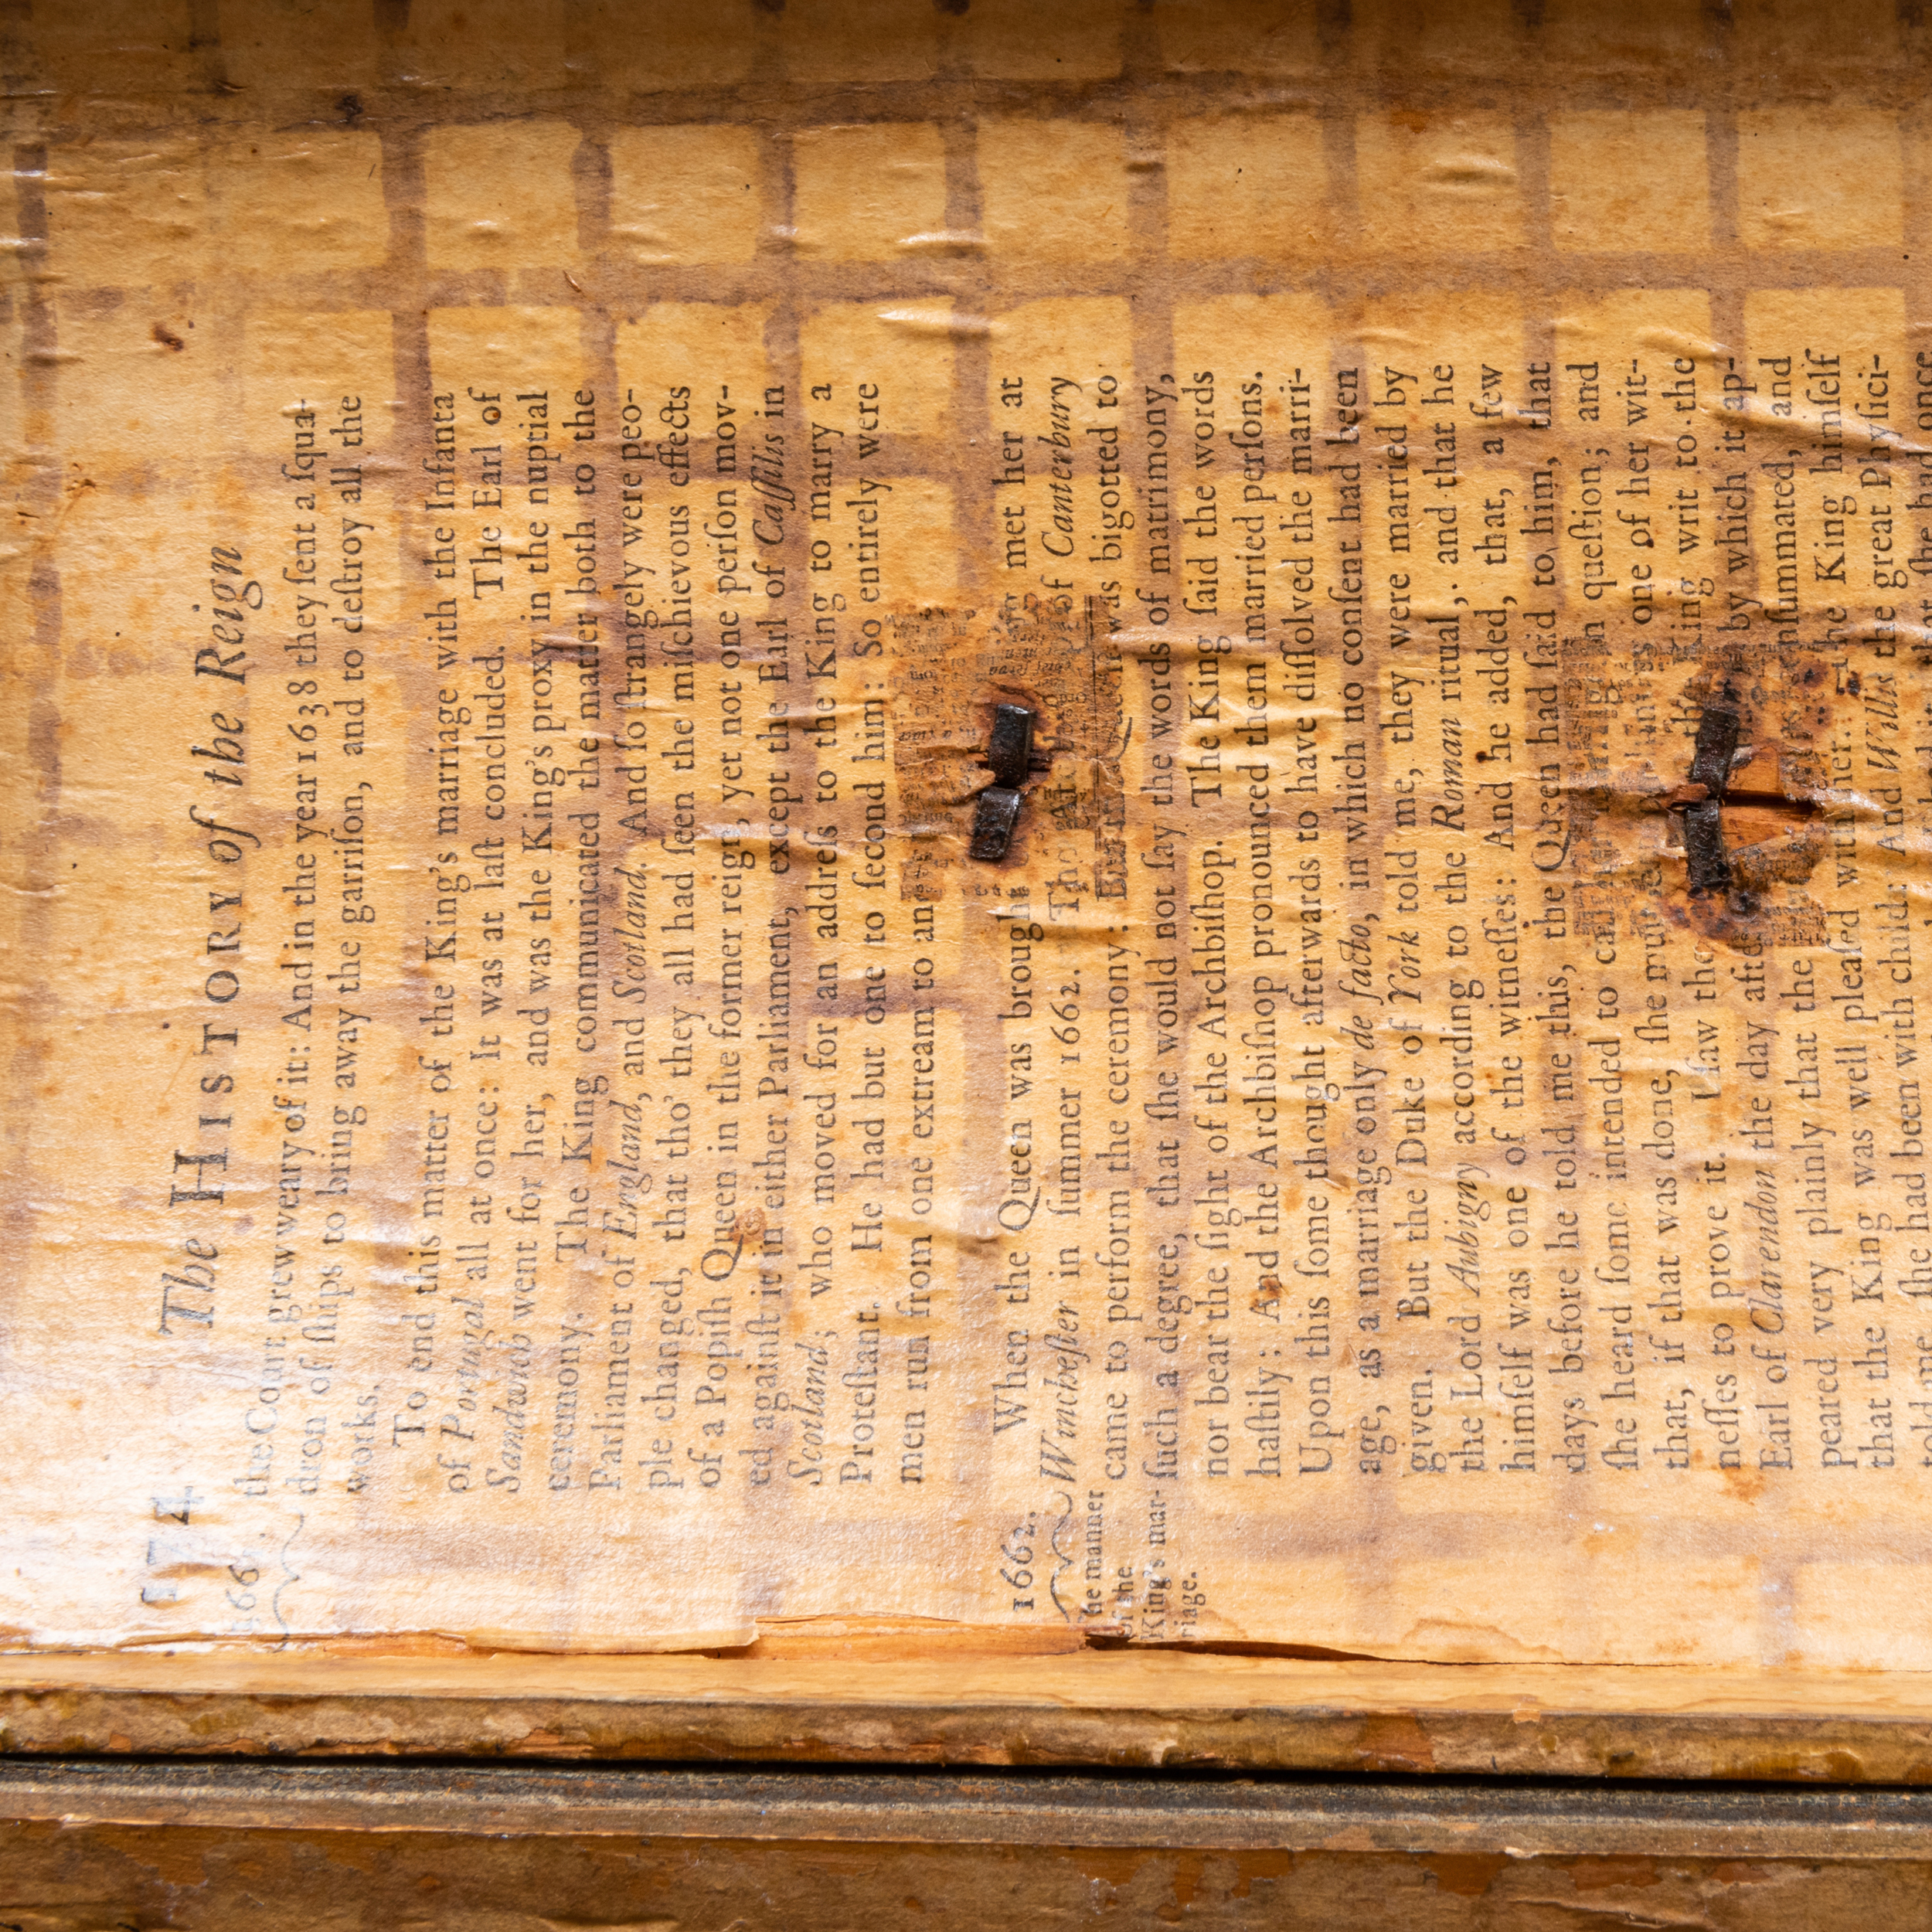 174 The HISTORY of the Reign
1661. the Court grew weary of it: And in the year 1638 they ſent a ſqua-
dron of ſhips to bring away the garriſon, and to deſtroy all the
works.
To end this matter of the King's marriage with the Infanta
of Portugal all at once: It was at laſt concluded. The Earl of
Sandwich went for her, and was the King's proxy in the nuptial
ceremony. The King communicated the matter both to the
Parliament of England, and Scotland. And ſo ſtrangely were peo-
ple changed, that tho' they all had ſeen the miſchievous effects
of a Popiſh Queen in the former reign, yet not one perſon mov-
ed againſt it in either Parliament, except the Earl of Caſſilis in
Scotland; who moved for an addreſs to the King to marry a
Proteſtant. He had but one to ſecond him: So entirely were
men run from one extream to an
1662. When the Queen was brought met her at
Wincheſter in ſummer 1662. The of Canterbury
The manner came to perform the ceremony: But was bigotted to
of the
King's mar- ſuch a degree, that ſhe would not ſay the words of matrimony,
riage. nor bear the ſight of the Archbiſhop. The King ſaid the words
haſtily: And the Archbiſhop pronounced them married perſons.
Upon this ſome thought afterwards to have diſſolved the marri-
age, as a marriage only de facto, in which no conſent had been
given. But the Duke of York told me, they were married by
the Lord Aubigny according to the Roman ritual, and that he
himſelf was one of the witneſſes: And he added, that, a few
days before he told me this, the Queen had ſaid to him, that
ſhe heard ſome intended to call in queſtion; and
that, if that was done, ſhe muſt one of her wit-
neſſes to prove it. I ſaw the the King writ to the
Earl of Clarendon the day after by which it ap-
peared very plainly that the nſummated, and
that the King was well pleaſed with her: the King himſelf
told me, ſhe had been with child: And Willis the great Phyſici-
ſhe had once